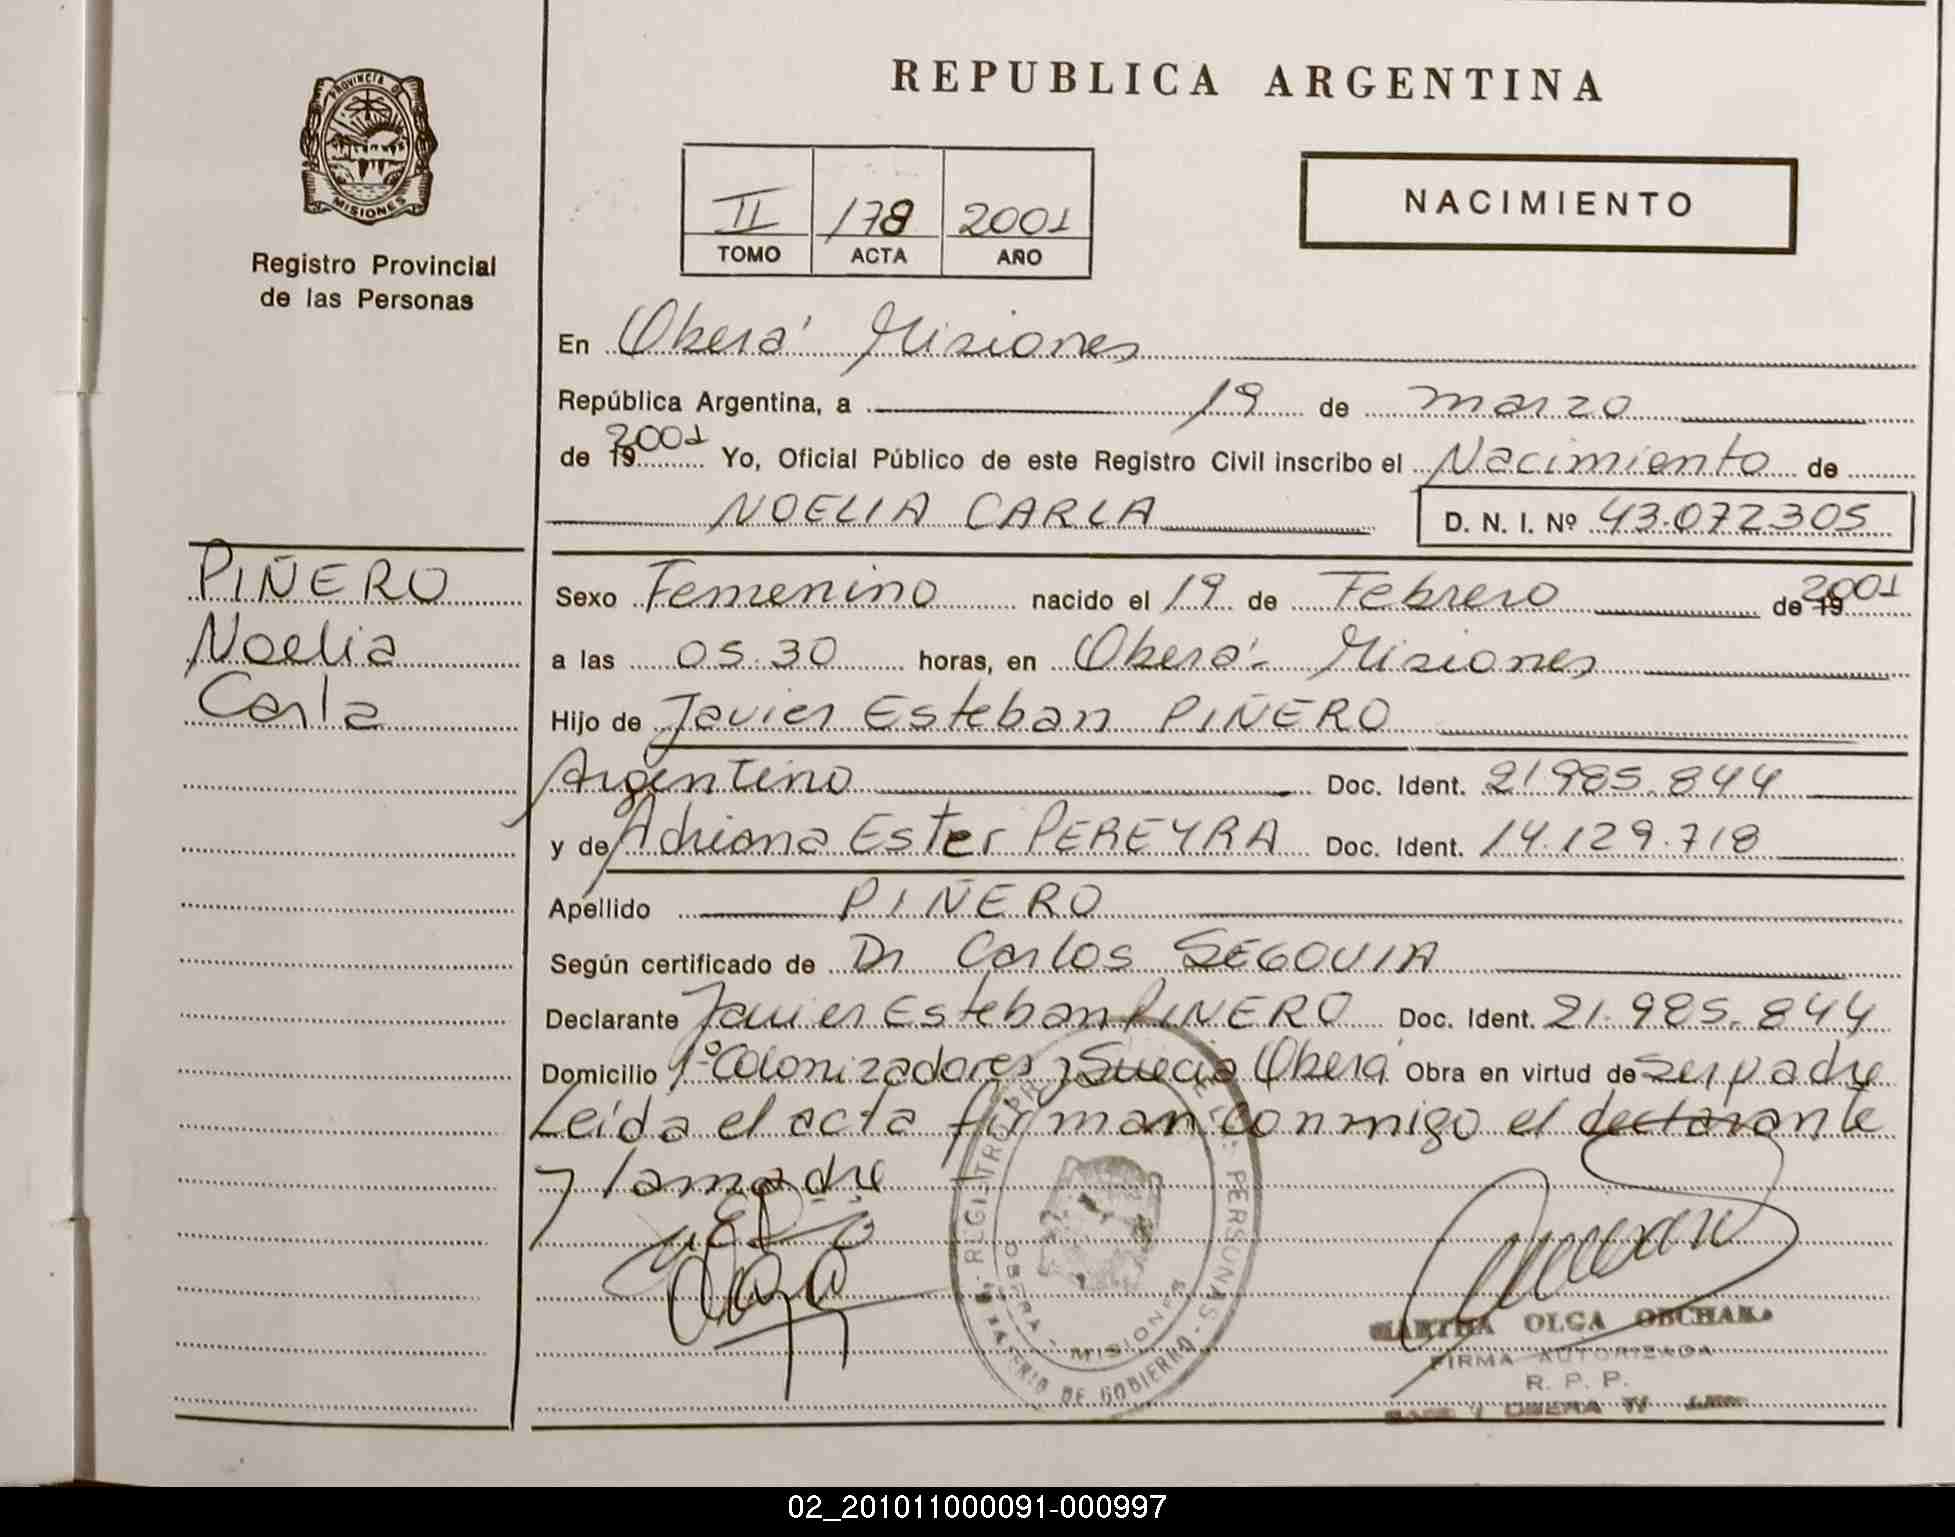 PROVINCIA DE
MISIONES
Registro Provincial
de las Personas
PIÑERO
Noelia
Carla
REPUBLICA ARGENTINA
II 178 2001
TOMO ACTA AÑO
NACIMIENTO
En Oberá Misiones
República Argentina, a 19 de marzo
de 19 2001 Yo, Oficial Público de este Registro Civil inscribo el Nacimiento de
NOELIA CARLA D. N. I. Nº 43.072305
Sexo Femenino nacido el 19 de Febrero de 19 2001
a las 05.30 horas, en Oberá - Misiones
Hijo de Javier Esteban PIÑERO
Argentino Doc. Ident. 21.985.844
y de Adriana Ester PEREYRA Doc. Ident. 14.129.718
Apellido PIÑERO
Según certificado de Dr Carlos SEGOVIA
Declarante Javier Esteban PIÑERO Doc. Ident. 21.985.844
Domicilio 1º Colonizadores y Suecia Oberá Obra en virtud de ser padre
Leída el acta firman conmigo el declarante
y la madre
PERSONAS
OBERA - MISIONES
DE GOBIERNO
MARTHA OLGA
FIRMA AUTORIZADA
R. P. P.
02_201011000091-000997